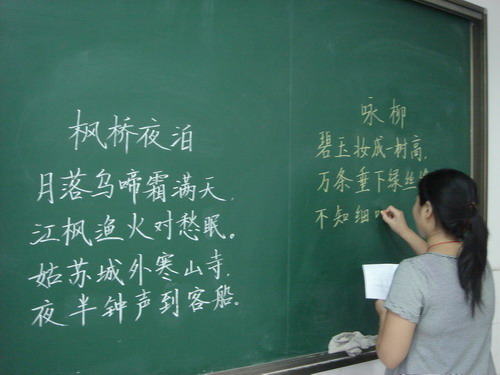 枫桥夜泊
月落乌啼霜满天,
江枫渔火对愁眠。
姑苏城外寒山寺,
夜半钟声到客船。
咏柳
碧玉妆成一树高,
万条垂下绿丝
不知细